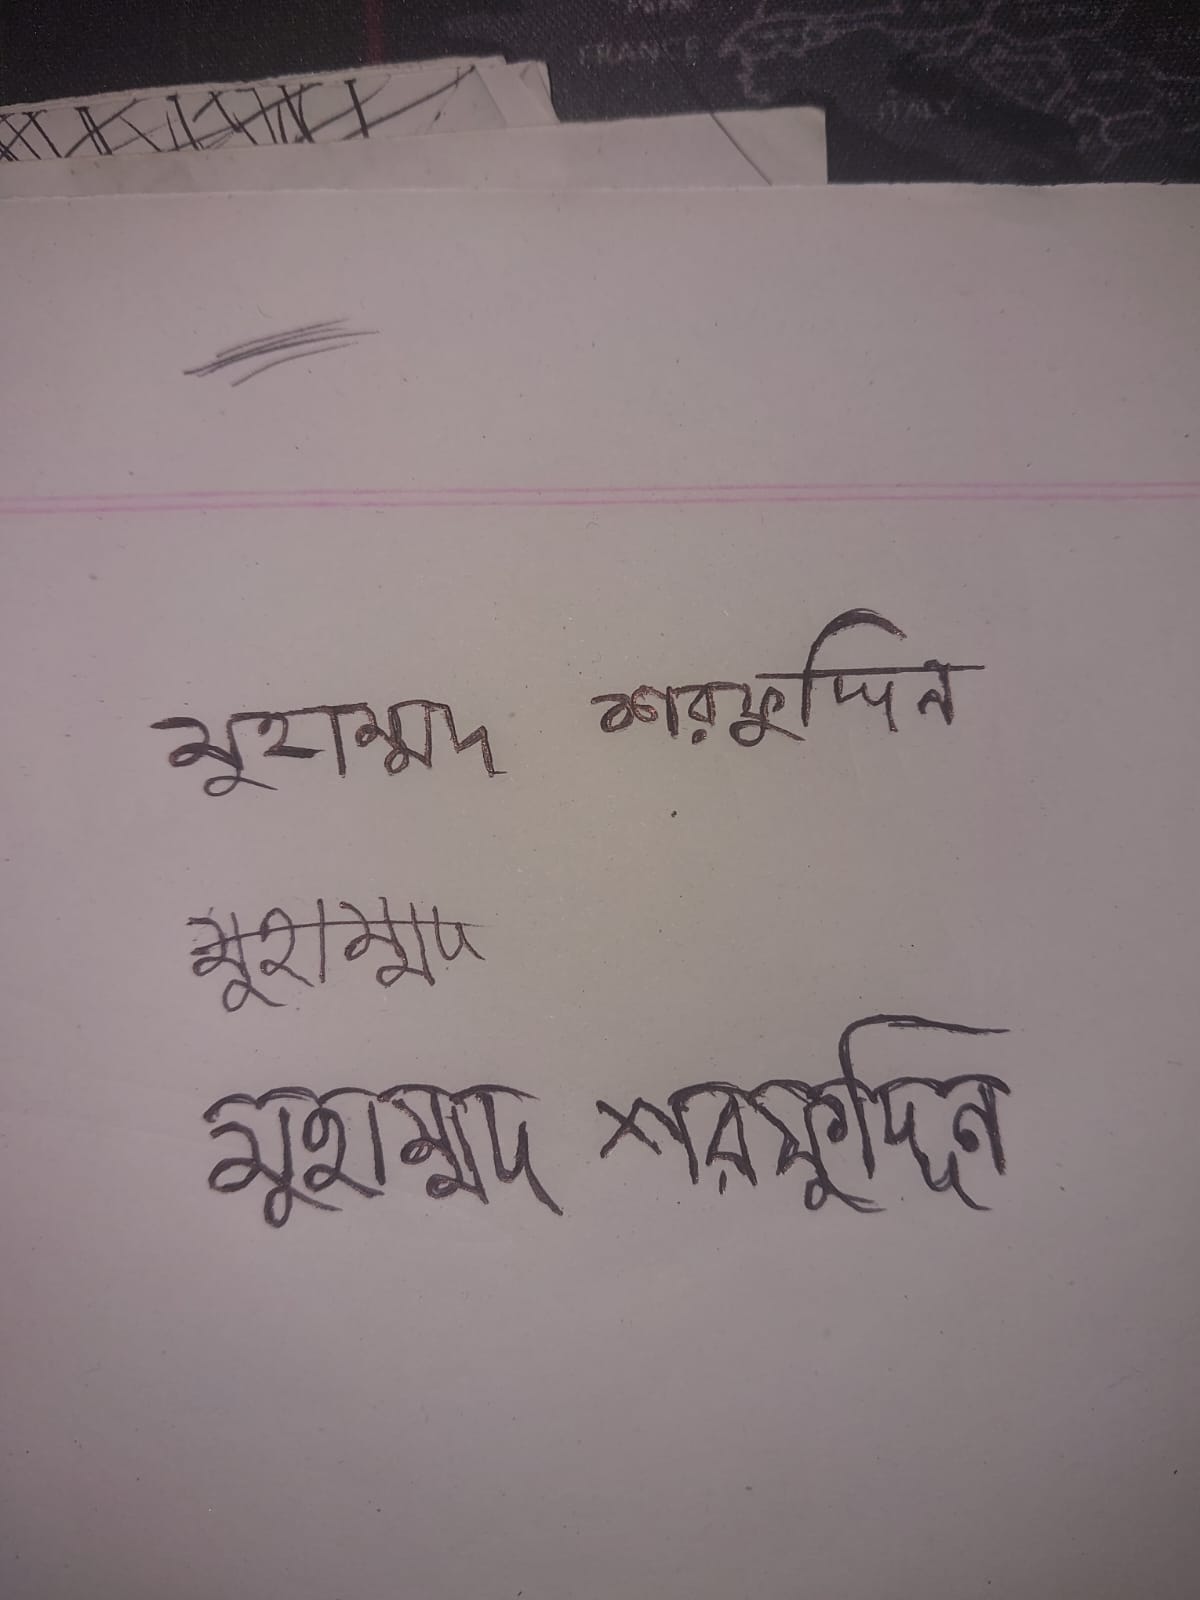 FRANCE
ITALY
মুহাম্মদ শরফুদ্দিন
মুহাম্মদ
মুহাম্মদ শরফুদ্দিন